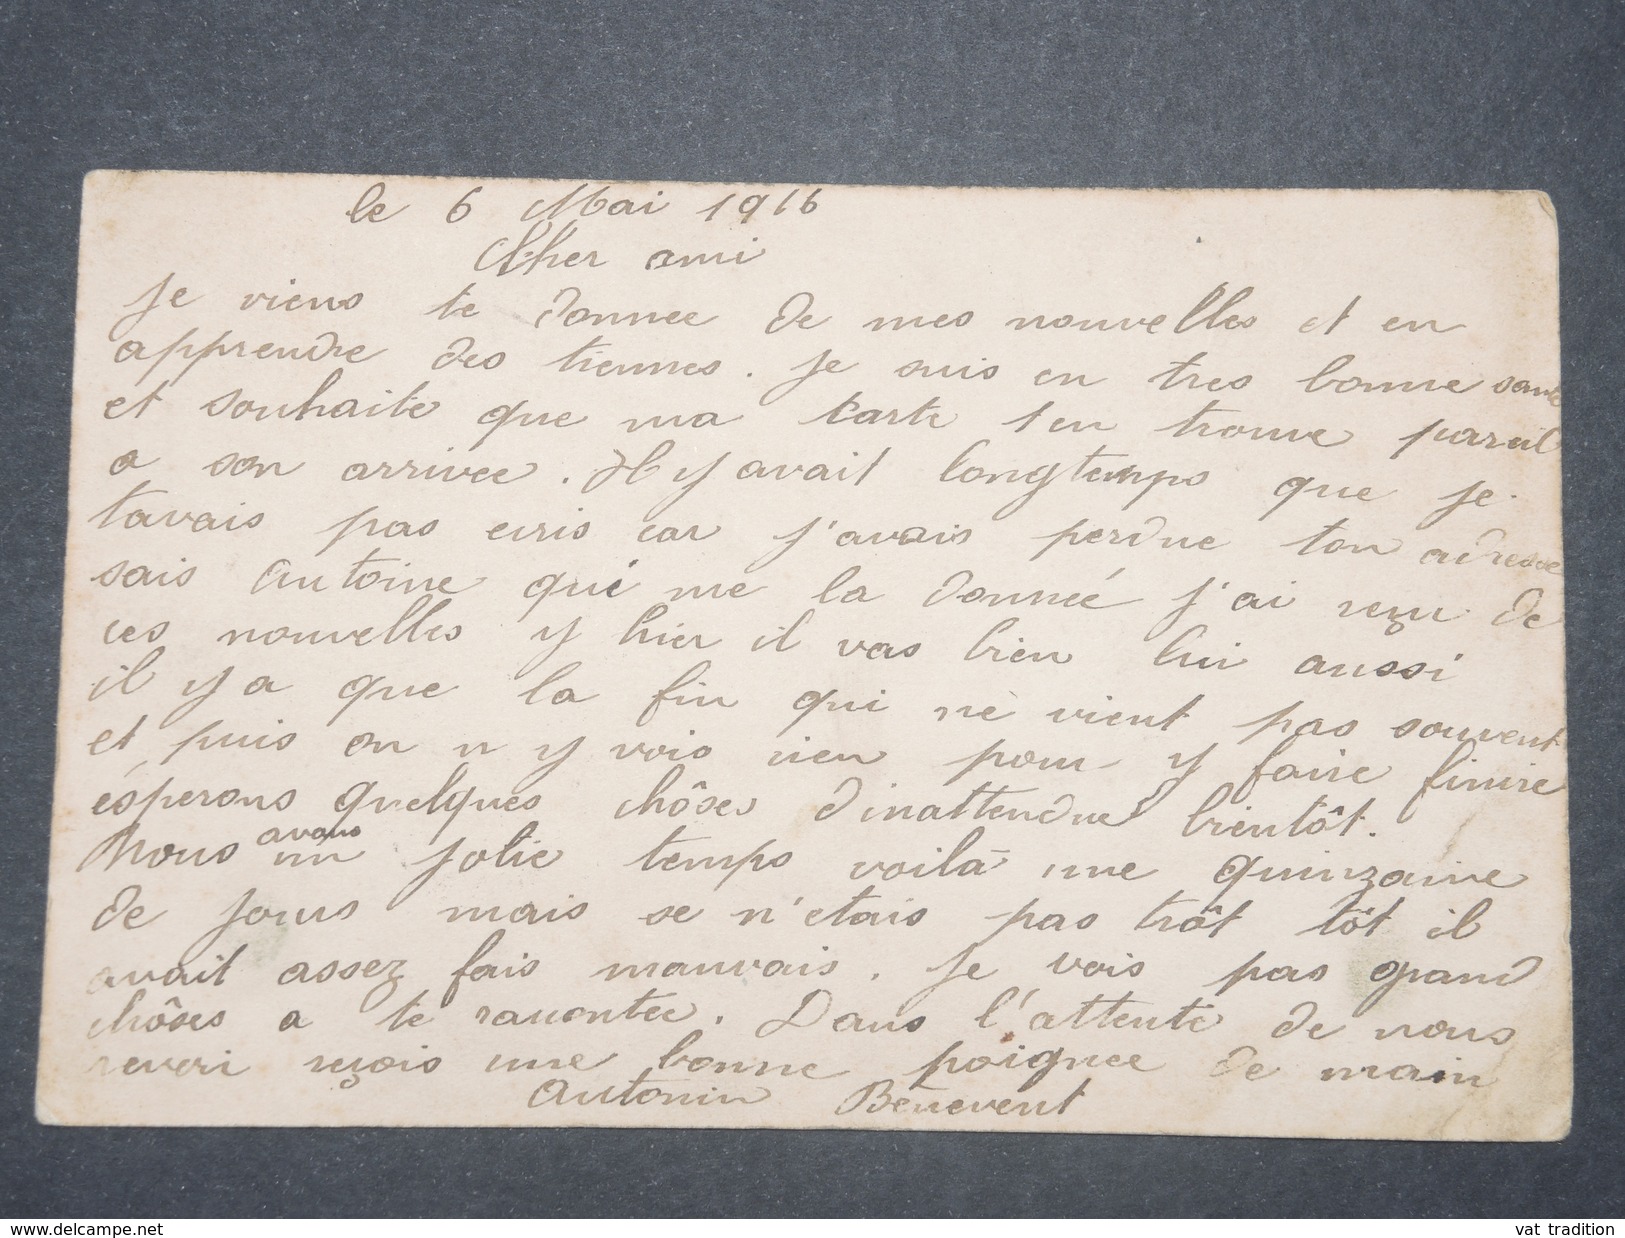 le 6 Mai 1916
Cher ami
Je viens te donnee de mes nouvelles et en
apprendre des tiennes. Je suis en tres bonne sante
et souhaite que ma carte t'en trouve pareil
a son arrivee. Il y avait longtemps que je
tavais pas ecris car j'avais perdue ton adresse
sais Antoine qui me la donneé j'ai reçu de
ces nouvelles y hier il vas bien lui aussi
il y a que la fin qui nè vient pas souvent
et puis on n y vois rien pour y faire finire
ésperons quelques chôses d'inattendue bientôt.
Nous avons un jolie temps voilà une quinzaine
de jours mais se n'etais pas trôt tôt il
avait assez fais mauvais. Je vois pas grand
chôses a te raconter. Dans l'attente de nous
reveri reçois une bonne poignee de main
Antonin Bénévent
www.delcampe.net
vat_tradition